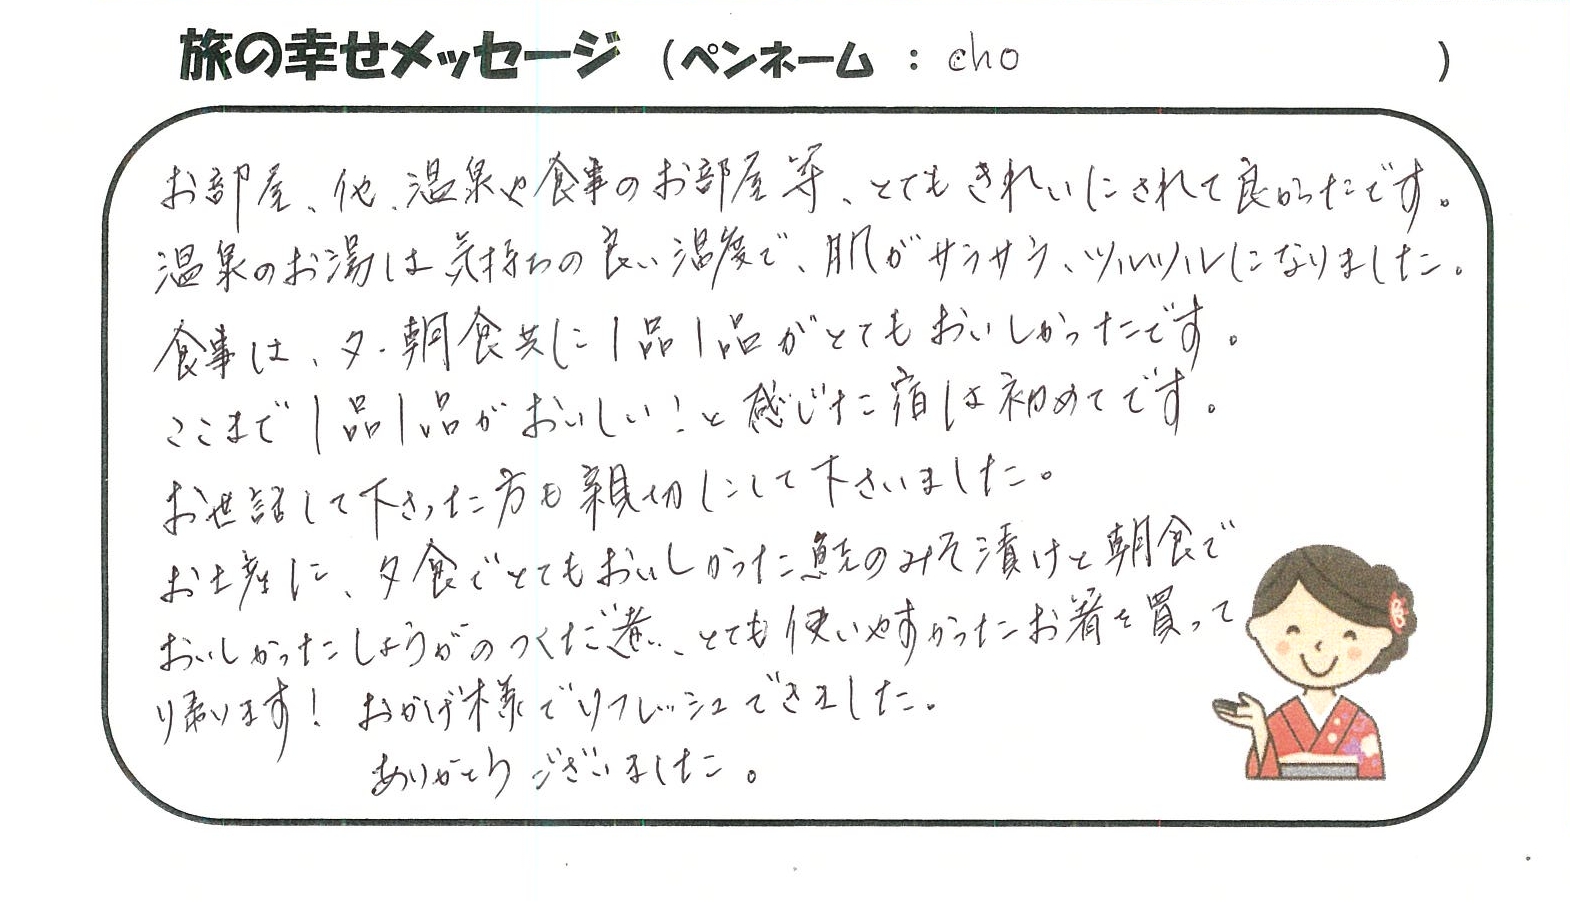 旅の幸せメッセージ (ペンネーム : cho )
お部屋、他、温泉や食事のお部屋等、とてもきれいにされて良かったです。
温泉のお湯は気持ちの良い温度で、肌がサラサラ、ツルツルになりました。
食事は、夕・朝食共に1品1品がとてもおいしかったです。
ここまで1品1品がおいしい!と感じた宿は初めてです。
お世話して下さった方も親切にして下さいました。
お土産に、夕食でとてもおいしかった のみそ漬けと朝食で
おいしかったしょうがのつくだ煮、とても使いやすかったお箸を買って
り帰ります! おかげ様でリフレッシュできました。
ありがとうございました。